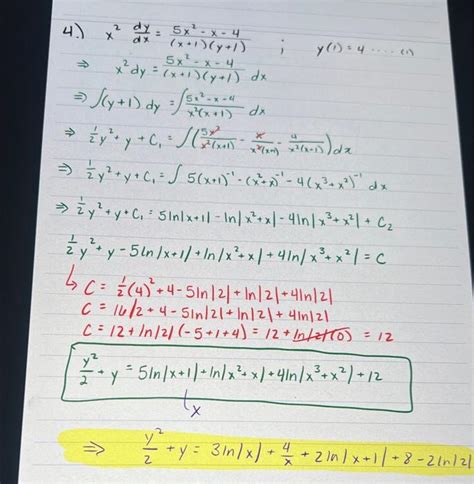 4.) x² dy/dx = (5x² - x - 4)/((x+1)(y+1)) ; y(1) = 4 .... (1)
⇒ x² dy = (5x² - x - 4)/((x+1)(y+1)) dx
⇒ ∫(y+1) dy = ∫ (5x² - x - 4)/(x²(x+1)) dx
⇒ ½y² + y + C₁ = ∫(5x²/(x²(x+1)) - x/(x²(x+1)) - 4/(x²(x+1))) dx
⇒ ½y² + y + C₁ = ∫ 5(x+1)⁻¹ - (x²+x)⁻¹ - 4(x³+x²)⁻¹ dx
⇒ ½y² + y + C₁ = 5ln|x+1| - ln|x²+x| - 4ln|x³+x²| + C₂
½y² + y - 5ln|x+1| + ln|x²+x| + 4ln|x³+x²| = C
↳ C = ½(4)² + 4 - 5ln|2| + ln|2| + 4ln|2|
C = 16/2 + 4 - 5ln|2| + ln|2| + 4ln|2|
C = 12 + ln|2|(-5+1+4) = 12 + ln|2|(0) = 12
y²/2 + y = 5ln|x+1| + ln|x²+x| + 4ln|x³+x²| + 12
x
⇒ y²/2 + y = 3ln|x| + 4/x + 2ln|x+1| + 8 - 2ln|2|